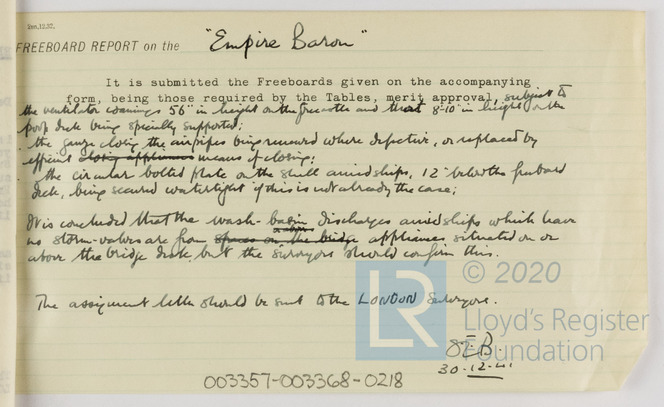 Rpn.12.37.
FREEBOARD REPORT on the "Empire Baron"
It is submitted the Freeboards given on the accompanying
form, being those required by the Tables, merit approval, subject to
the ventilator coamings 56" in height on the freecastle and that 8-10" in height on the
poop deck being specially supported;
the gauze closing the airpipes being renewed where defective, or replaced by
efficient closing appliances means of closing;
the circular bolted plate on the shell amidships, 12" below the freeboard
deck, being secured watertight if this is not already the case;
It is concluded that the wash-basin discharges amidships which have
no storm-valves are from spaces on the bridge appliances situated on or
above the bridge deck, but the surveyors should confirm this.
The assignment letter should be sent to the LONDON Surveyors.
30-12-41
003357-003368-0218
LR
© 2020
Lloyd's Register
Foundation